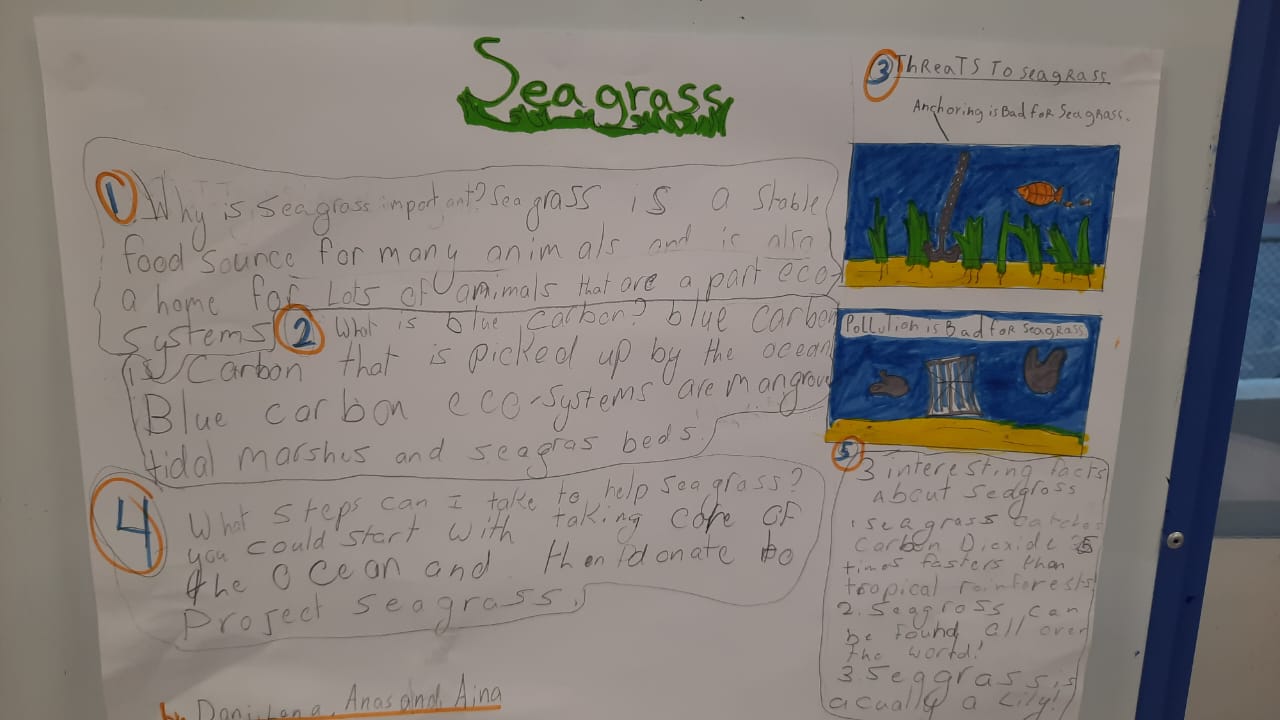 Seagrass
1 Why is seagrass important? Seagrass is a stable
food source for many animals and is also
a home for Lots of animals that are a part eco-
systems
2 What is blue carbon? blue carbon
is Carbon that is picked up by the ocean
Blue carbon eco-systems are mangrove
tidal marshes and seagras beds.
3 Threats To seagrass
Anchoring is Bad for Seagrass.
Pollution is Bad for Seagrass
4 What steps can I take to help seagrass?
you could start with taking care of
the ocean and then donate to
Project seagrass.
5 3 interesting facts
about seagrass
seagrass catches
Carbon Dioxide
times fasters than
tropical rainforests
2. Seagrass can
be found all over
the world!
3. Seagrass is
acually a Lily!
by Dani, Anas and Aina